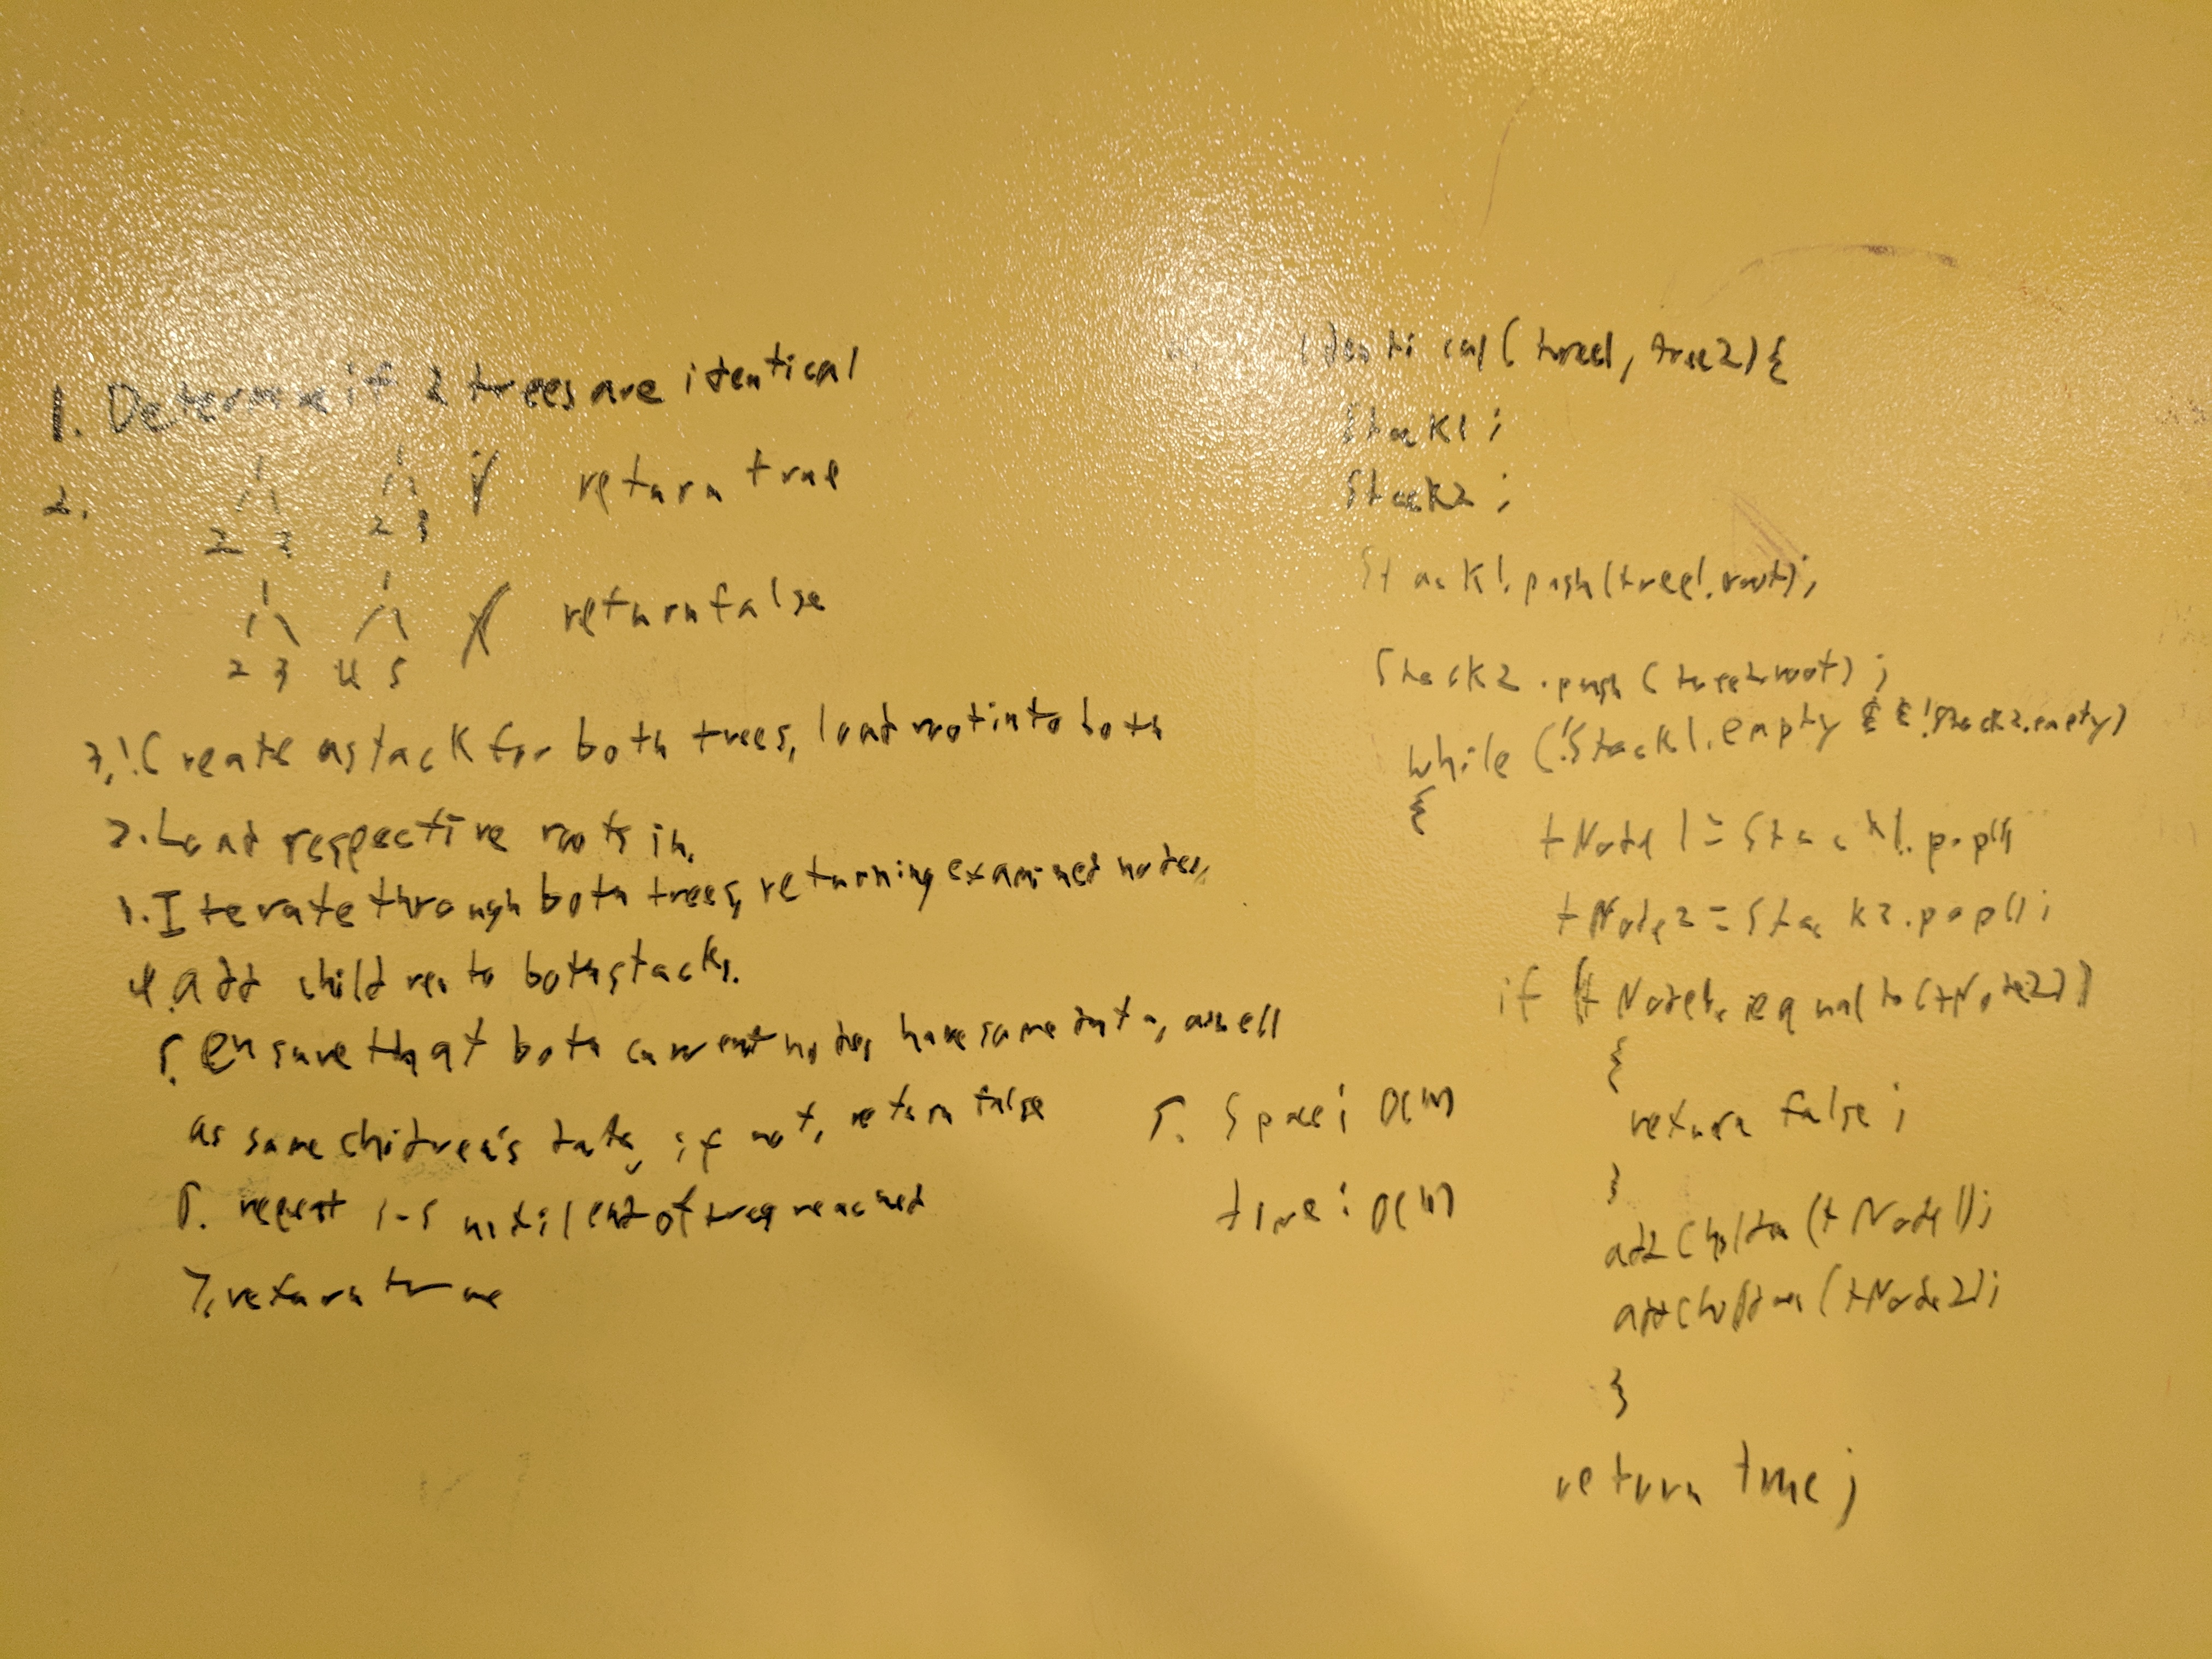 1. Determine if 2 trees are identical
2.
1 1 return true
2 3 2 3
1 1 return false
2 3 4 5
3. 1. Create a stack for both trees, load root into both
2. Load respective roots in.
3. Iterate through both trees, returning examined nodes,
4. add children to both stacks.
5. ensure that both current nodes have same data, as well
as same children's data, if not, return false
6. repeat 1-5 until end of tree reached
7. return true
identical (tree1, tree2) {
Stack1 ;
Stack2 ;
Stack1.push(tree1.root);
Stack2.push(tree2.root);
while (!Stack1.empty && !Stack2.empty)
{
tNode1 = Stack1.pop()
tNode2 = Stack2.pop();
if (tNode1. equalto(tNode2))
{
return false;
}
addChildren(tNode1);
addChildren(tNode2);
}
return true;
5. Space: O(n)
time: O(n)